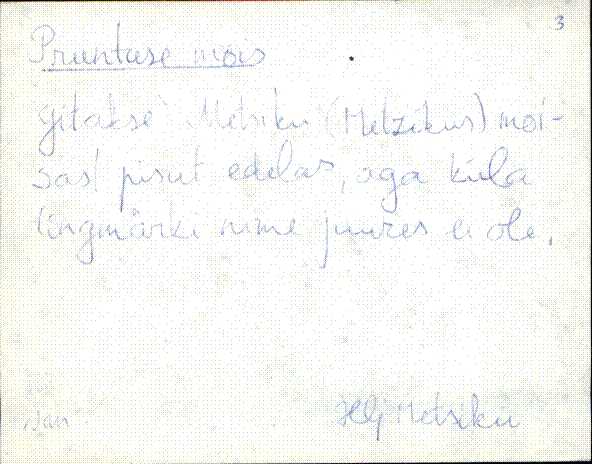 3
Pruntuse mois
Metsiku (Metzikus) moi-
sast pisut edelas, aga küla
ringmärki nime juures ei ole.
Hlj Metsiku
Jan